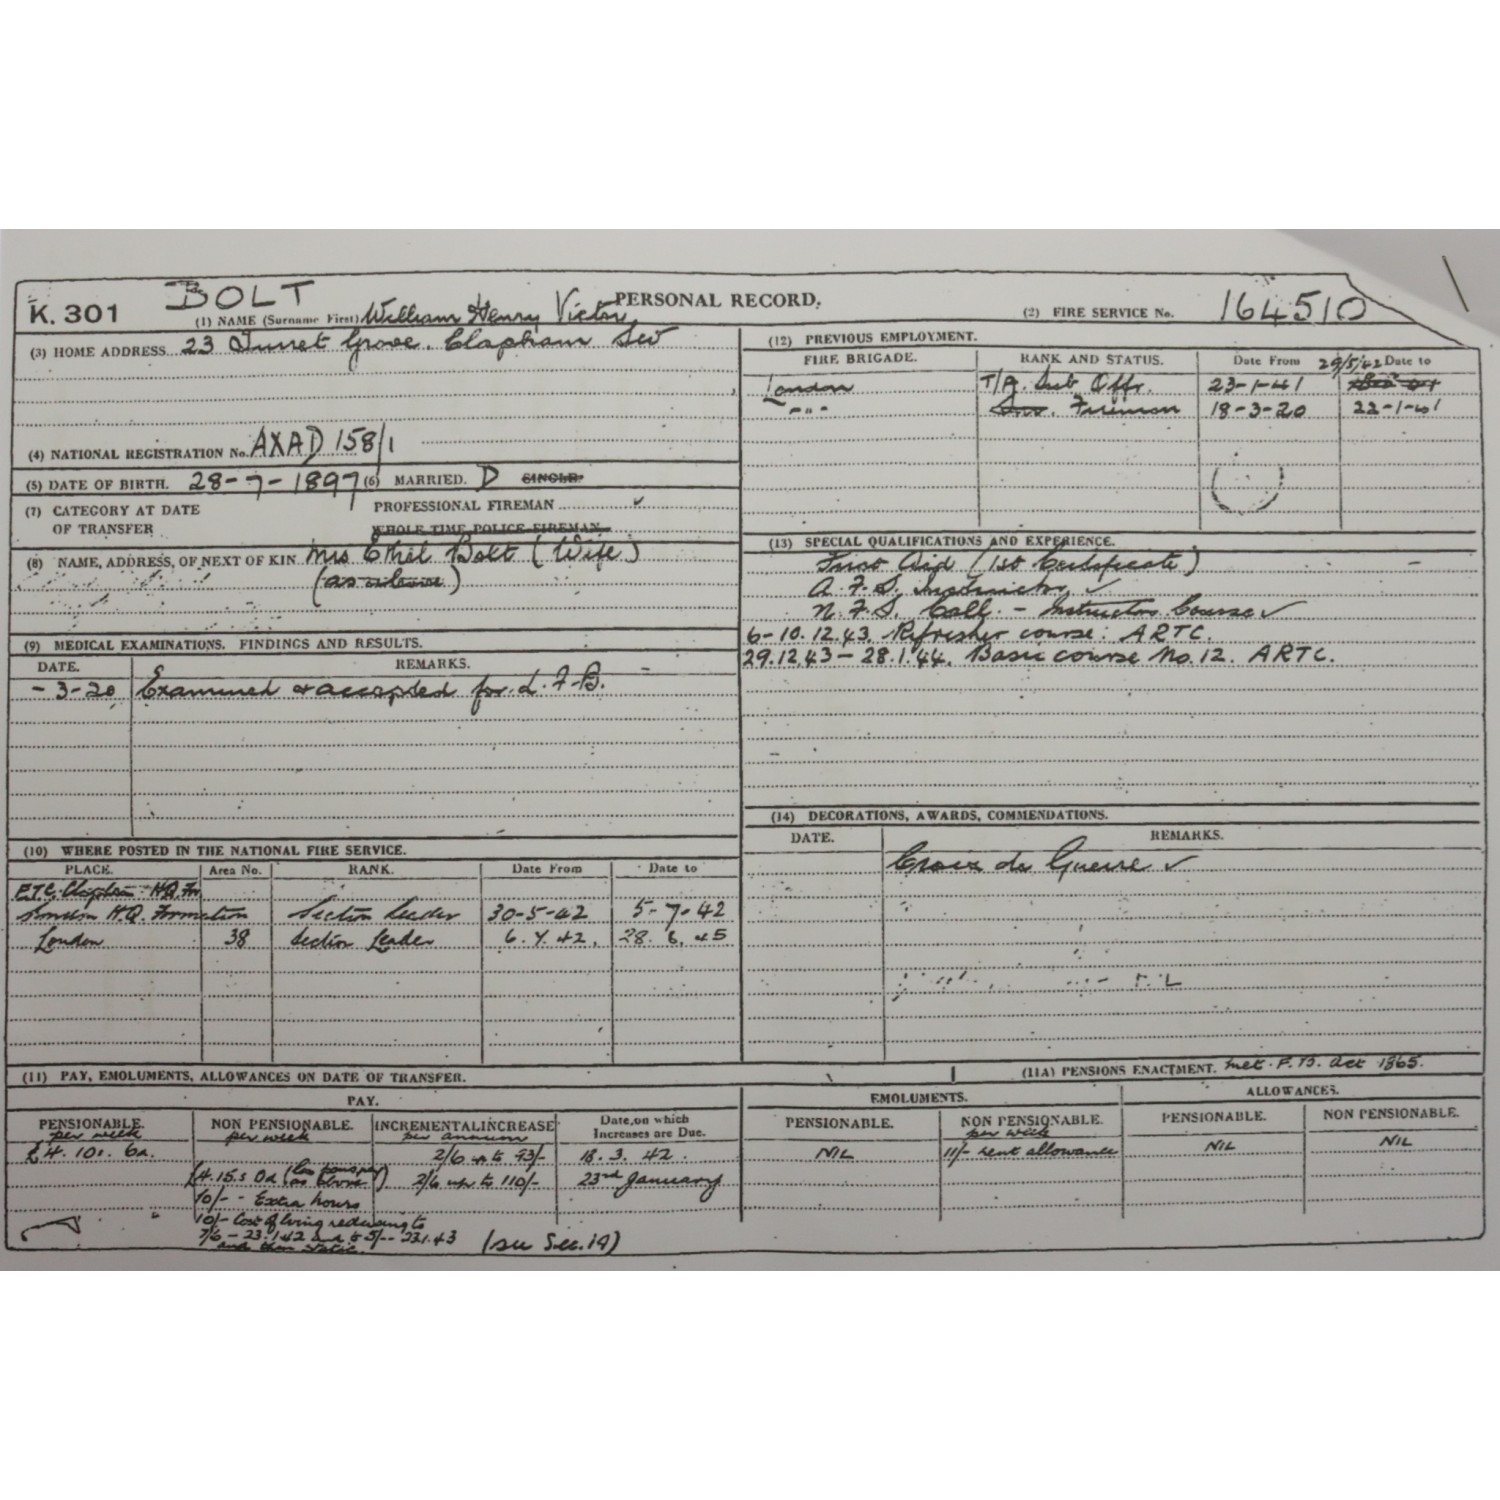 K. 301 BOLT PERSONAL RECORD.
(1) NAME (Surname First) William Henry Victor (2) FIRE SERVICE No. 164510
(3) HOME ADDRESS 23 Turret Grove. Clapham SW
(4) NATIONAL REGISTRATION No. AXAD 158/1
(5) DATE OF BIRTH. 28-7-1897 (6) MARRIED. D SINGLE.
(7) CATEGORY AT DATE OF TRANSFER PROFESSIONAL FIREMAN ✓
WHOLE TIME POLICE FIREMAN
(8) NAME, ADDRESS, OF NEXT OF KIN Mrs Ethel Bolt (Wife)
(as above)
(9) MEDICAL EXAMINATIONS. FINDINGS AND RESULTS.
DATE. REMARKS.
-3-20 Examined & accepted for L.F.B.
(10) WHERE POSTED IN THE NATIONAL FIRE SERVICE.
PLACE. Area No. RANK. Date From Date to
F.T.C. Clapham HQ Fm
London H.Q. Formation Section Leader 30-5-42 5-7-42
London 38 Section Leader 6.7.42. 28.6.45
(12) PREVIOUS EMPLOYMENT.
FIRE BRIGADE. RANK AND STATUS. Date From Date to
29/5/42
London T/A. Sub Offr. 23-1-41
-"- Fireman 18-3-20 22-1-41
(13) SPECIAL QUALIFICATIONS AND EXPERIENCE.
First Aid (1st Certificate)
A.F.S. Instructor ✓
N.F.S. Coll. - Instructors Course ✓
6-10.12.43. Refresher course. ARTC.
29.12.43 - 28.1.44. Basic course No. 12. ARTC.
(14) DECORATIONS, AWARDS, COMMENDATIONS.
DATE. REMARKS.
Croix de Guerre ✓
(11) PAY, EMOLUMENTS, ALLOWANCES ON DATE OF TRANSFER. (11A) PENSIONS ENACTMENT. Met. F.B. Act 1865.
PAY. EMOLUMENTS. ALLOWANCES.
PENSIONABLE. NON PENSIONABLE. INCREMENTAL INCREASE Date, on which Increases are Due. PENSIONABLE. NON PENSIONABLE. PENSIONABLE. NON PENSIONABLE.
per week per week per annum per week
£4. 10s. 6d. 2/6 up to 93/- 18.3.42. NIL 11/- rent allowance NIL NIL
£4.15.s 0d (as above) 2/6 up to 110/- 23rd January
10/- - Extra hours
10/- Cost of living reducing to
7/6 - 23.1.42 and to 5/- - 23.1.43 (see Sec. 19)
and then static.